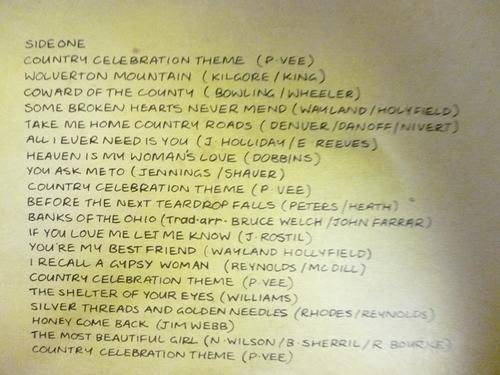 SIDE ONE
COUNTRY CELEBRATION THEME (P. VEE)
WOLVERTON MOUNTAIN (KILGORE/KING)
COWARD OF THE COUNTY (BOWLING/WHEELER)
SOME BROKEN HEARTS NEVER MEND (WAYLAND/HOLYFIELD)
TAKE ME HOME COUNTRY ROADS (DENVER/DANOFF/NIVERT)
ALL I EVER NEED IS YOU (J. HOLLIDAY/E REEVES)
HEAVEN IS MY WOMAN'S LOVE (DOBBINS)
YOU ASK ME TO (JENNINGS/SHAVER)
COUNTRY CELEBRATION THEME (P. VEE)
BEFORE THE NEXT TEARDROP FALLS (PETERS/HEATH)
BANKS OF THE OHIO (Trad-arr- BRUCE WELCH/JOHN FARRAR)
IF YOU LOVE ME LET ME KNOW (J. ROSTIL)
YOU'RE MY BEST FRIEND (WAYLAND HOLLYFIELD)
I RECALL A GYPSY WOMAN (REYNOLDS/MC DILL)
COUNTRY CELEBRATION THEME (P. VEE)
THE SHELTER OF YOUR EYES (WILLIAMS)
SILVER THREADS AND GOLDEN NEEDLES (RHODES/REYNOLDS)
HONEY COME BACK (JIM WEBB)
THE MOST BEAUTIFUL GIRL (N. WILSON/B. SHERRIL/R. BOURKE)
COUNTRY CELEBRATION THEME (P. VEE)